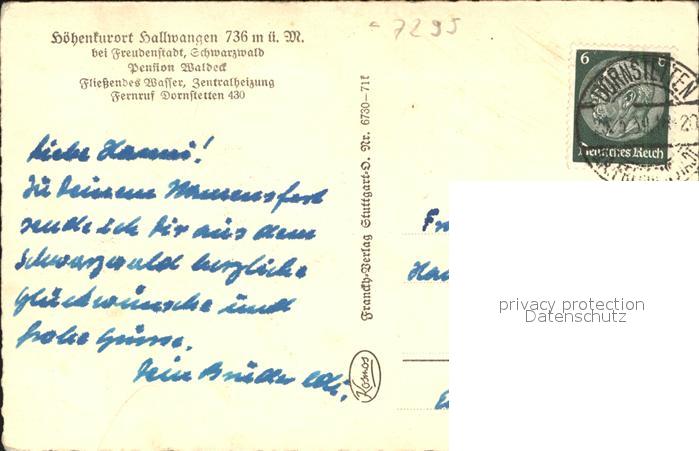 Höhenkurort Hallwangen 736 m ü. M.
bei Freudenstadt, Schwarzwald
Pension Waldeck
Fließendes Wasser, Zentralheizung
Fernruf Dornstetten 430
7295
Liebe Hanni!
Zu Deinem Namensfest
sende ich Dir aus dem
Schwarzwald herzliche
Glückwünsche und
frohe Grüsse.
Dein Bruder
Franckh-Verlag Stuttgart-O. Nr. 6730-71k
Kosmos
6
Deutsches Reich
DORNSTETTEN
privacy protection
Datenschutz